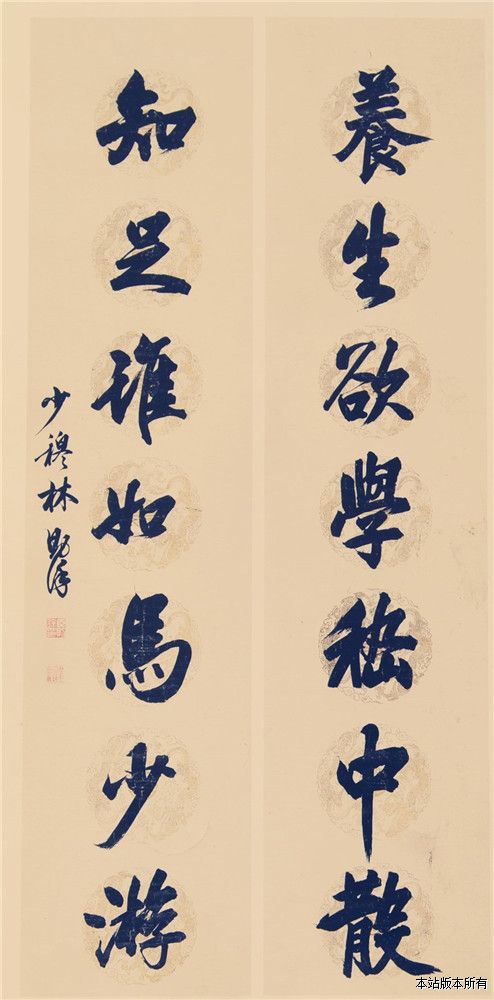 養生欲學嵇中散
知足誰如馬少游
少穆林則徐
本站版本所有